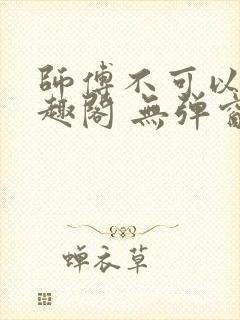 師傅不可以
趣閣 無彈
蝉衣草